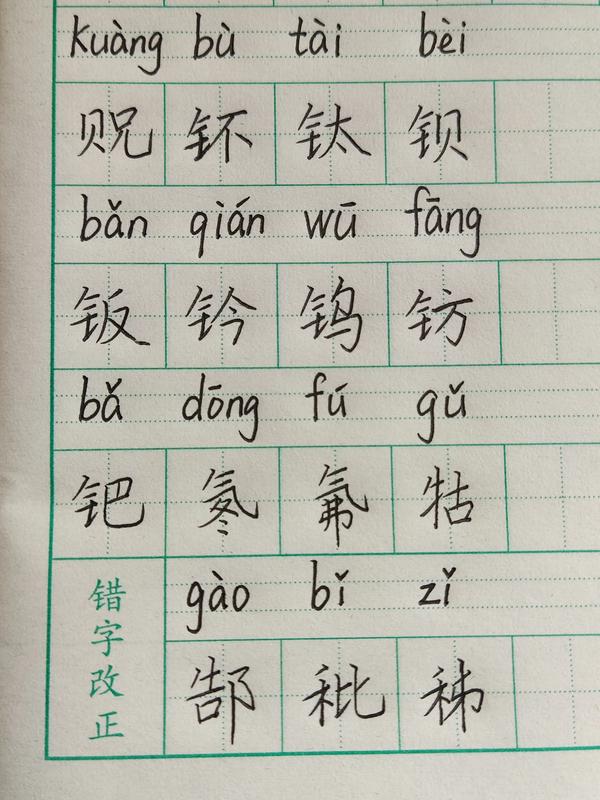 kuàng bù tài bèi
贶 钚 钛 钡
bǎn qián wū fāng
钣 钤 钨 钫
bǎ dōng fú gǔ
钯 氡 氟 牯
gào bǐ zǐ
郜 秕 秭
错字改正